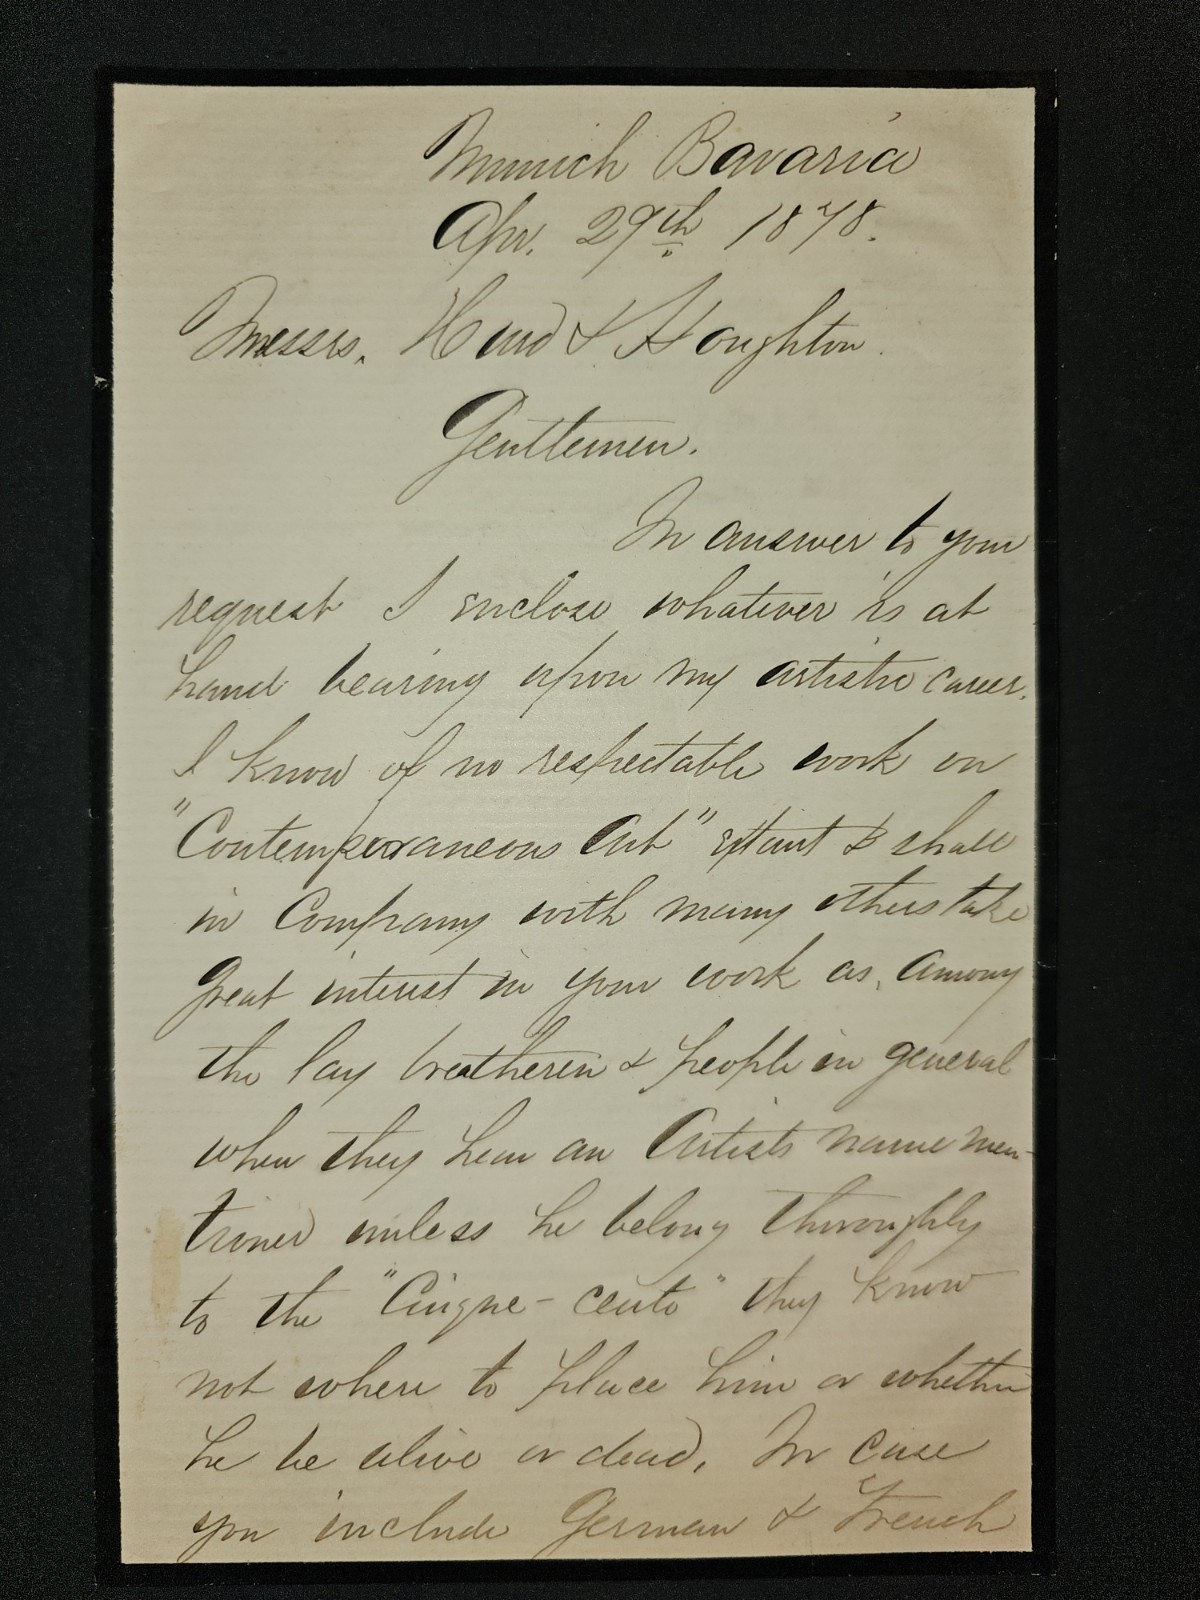 Munich Bavaria
Apr. 29th 1878.
Messrs. Hurd & Houghton.
Gentlemen.
In answer to your
request I enclose whatever is at
hand bearing upon my artistic career.
I know of no respectable work on
"Contemporaneous Art" extant & shall
in Company with many others take
great interest in your work as, among
the lay breatheren & people in general
when they hear an Artists name men-
tioned unless he belong thoroughly
to the "Cinque-cento" they know
not where to place him or whether
he be alive or dead. In case
you include German & French